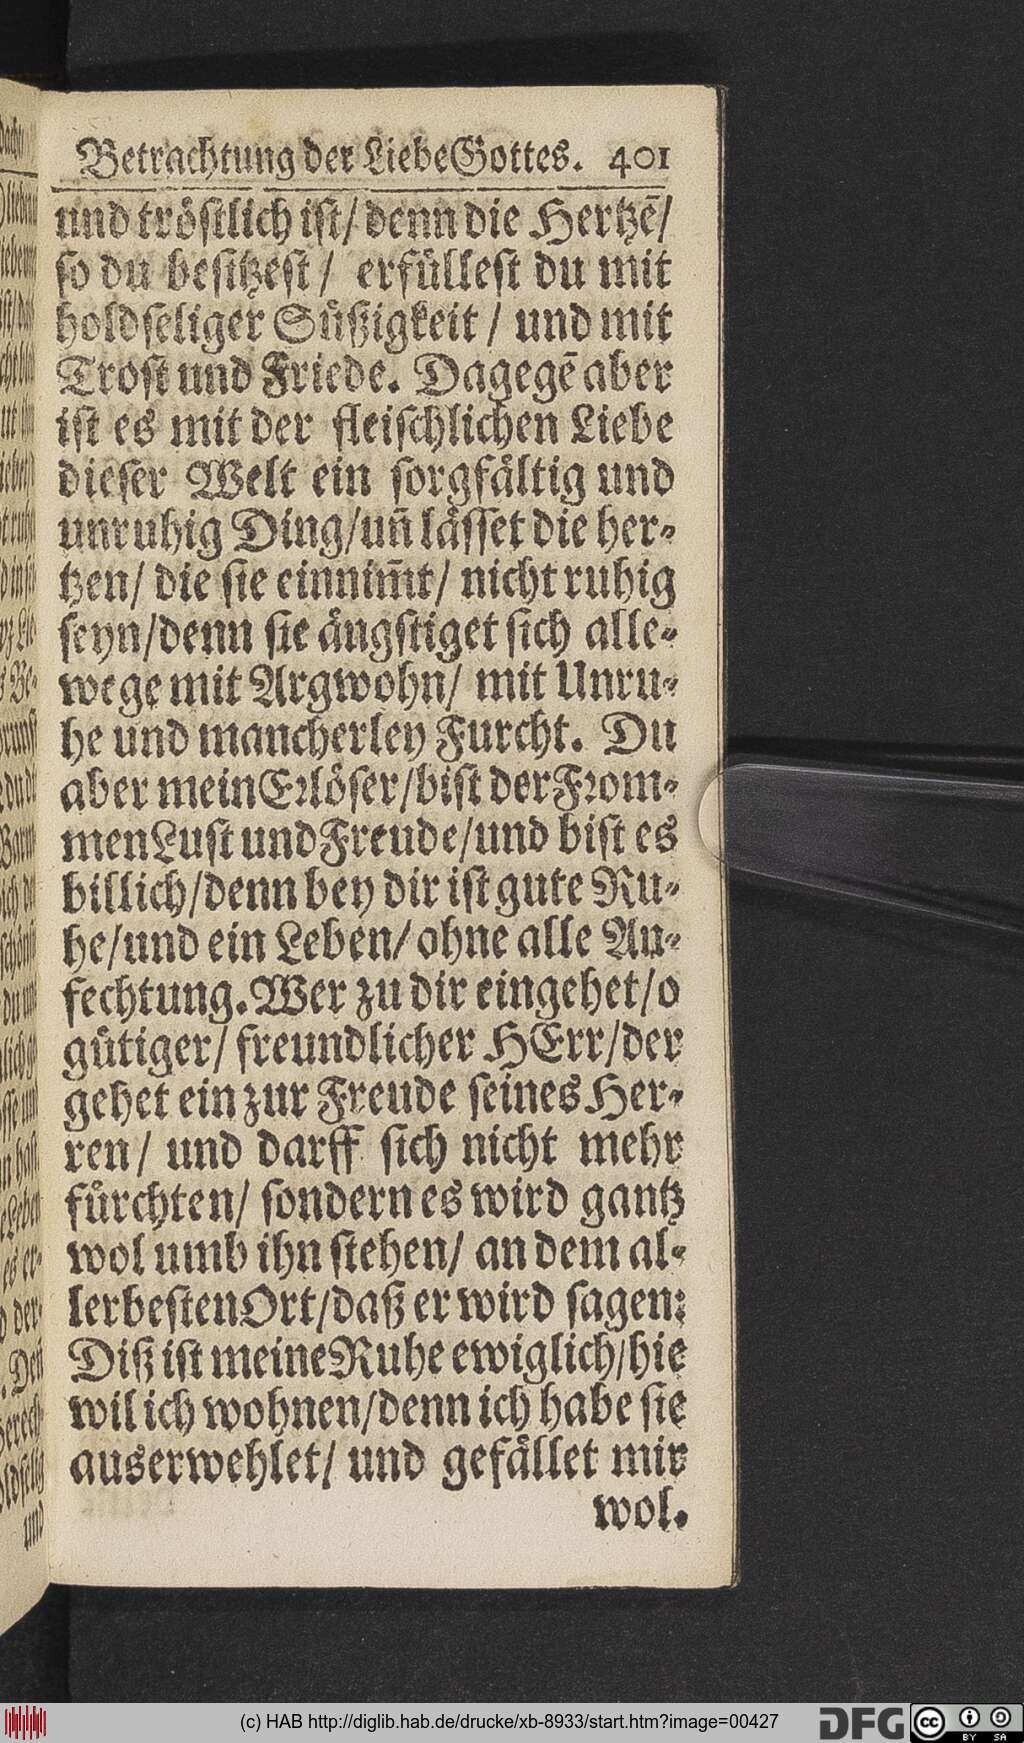 Betrachtung der Liebe Gottes. 401
und tröstlich ist/ denn die Hertzē/
so du besitzest/ erfüllest du mit
holdseliger Süßigkeit/ und mit
Trost und Friede. Dagegē aber
ist es mit der fleischlichen Liebe
dieser Welt ein sorgfältig und
unruhig Ding/ un̄ lässet die her-
tzen/ die sie einnim̄t/ nicht ruhig
seyn/ denn sie ängstiget sich alle-
wege mit Argwohn/ mit Unru-
he und mancherley Furcht. Du
aber mein Erlöser/ bist der From-
men Lust und Freude/ und bist es
billich/ denn bey dir ist gute Ru-
he/ und ein Leben/ ohne alle An-
fechtung. Wer zu dir eingehet/ o
gütiger/ freundlicher HErr/ der
gehet ein zur Freude seines Her-
ren/ und darff sich nicht mehr
fürchten/ sondern es wird gantz
wol umb ihn stehen/ an dem al-
lerbesten Ort/ daß er wird sagen:
Diß ist meine Ruhe ewiglich/ hie
wil ich wohnen/ denn ich habe sie
auserwehlet/ und gefället mir
wol.
(c) HAB http://diglib.hab.de/drucke/xb-8933/start.htm?image=00427
DFG
cc BY SA